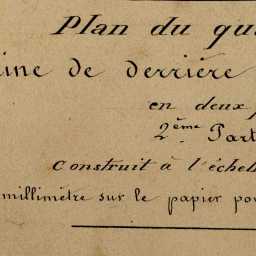 Plan du qua
ine de derrière
en deux p
2ème Part
Construit à l'échel
millimètre sur le papier pou